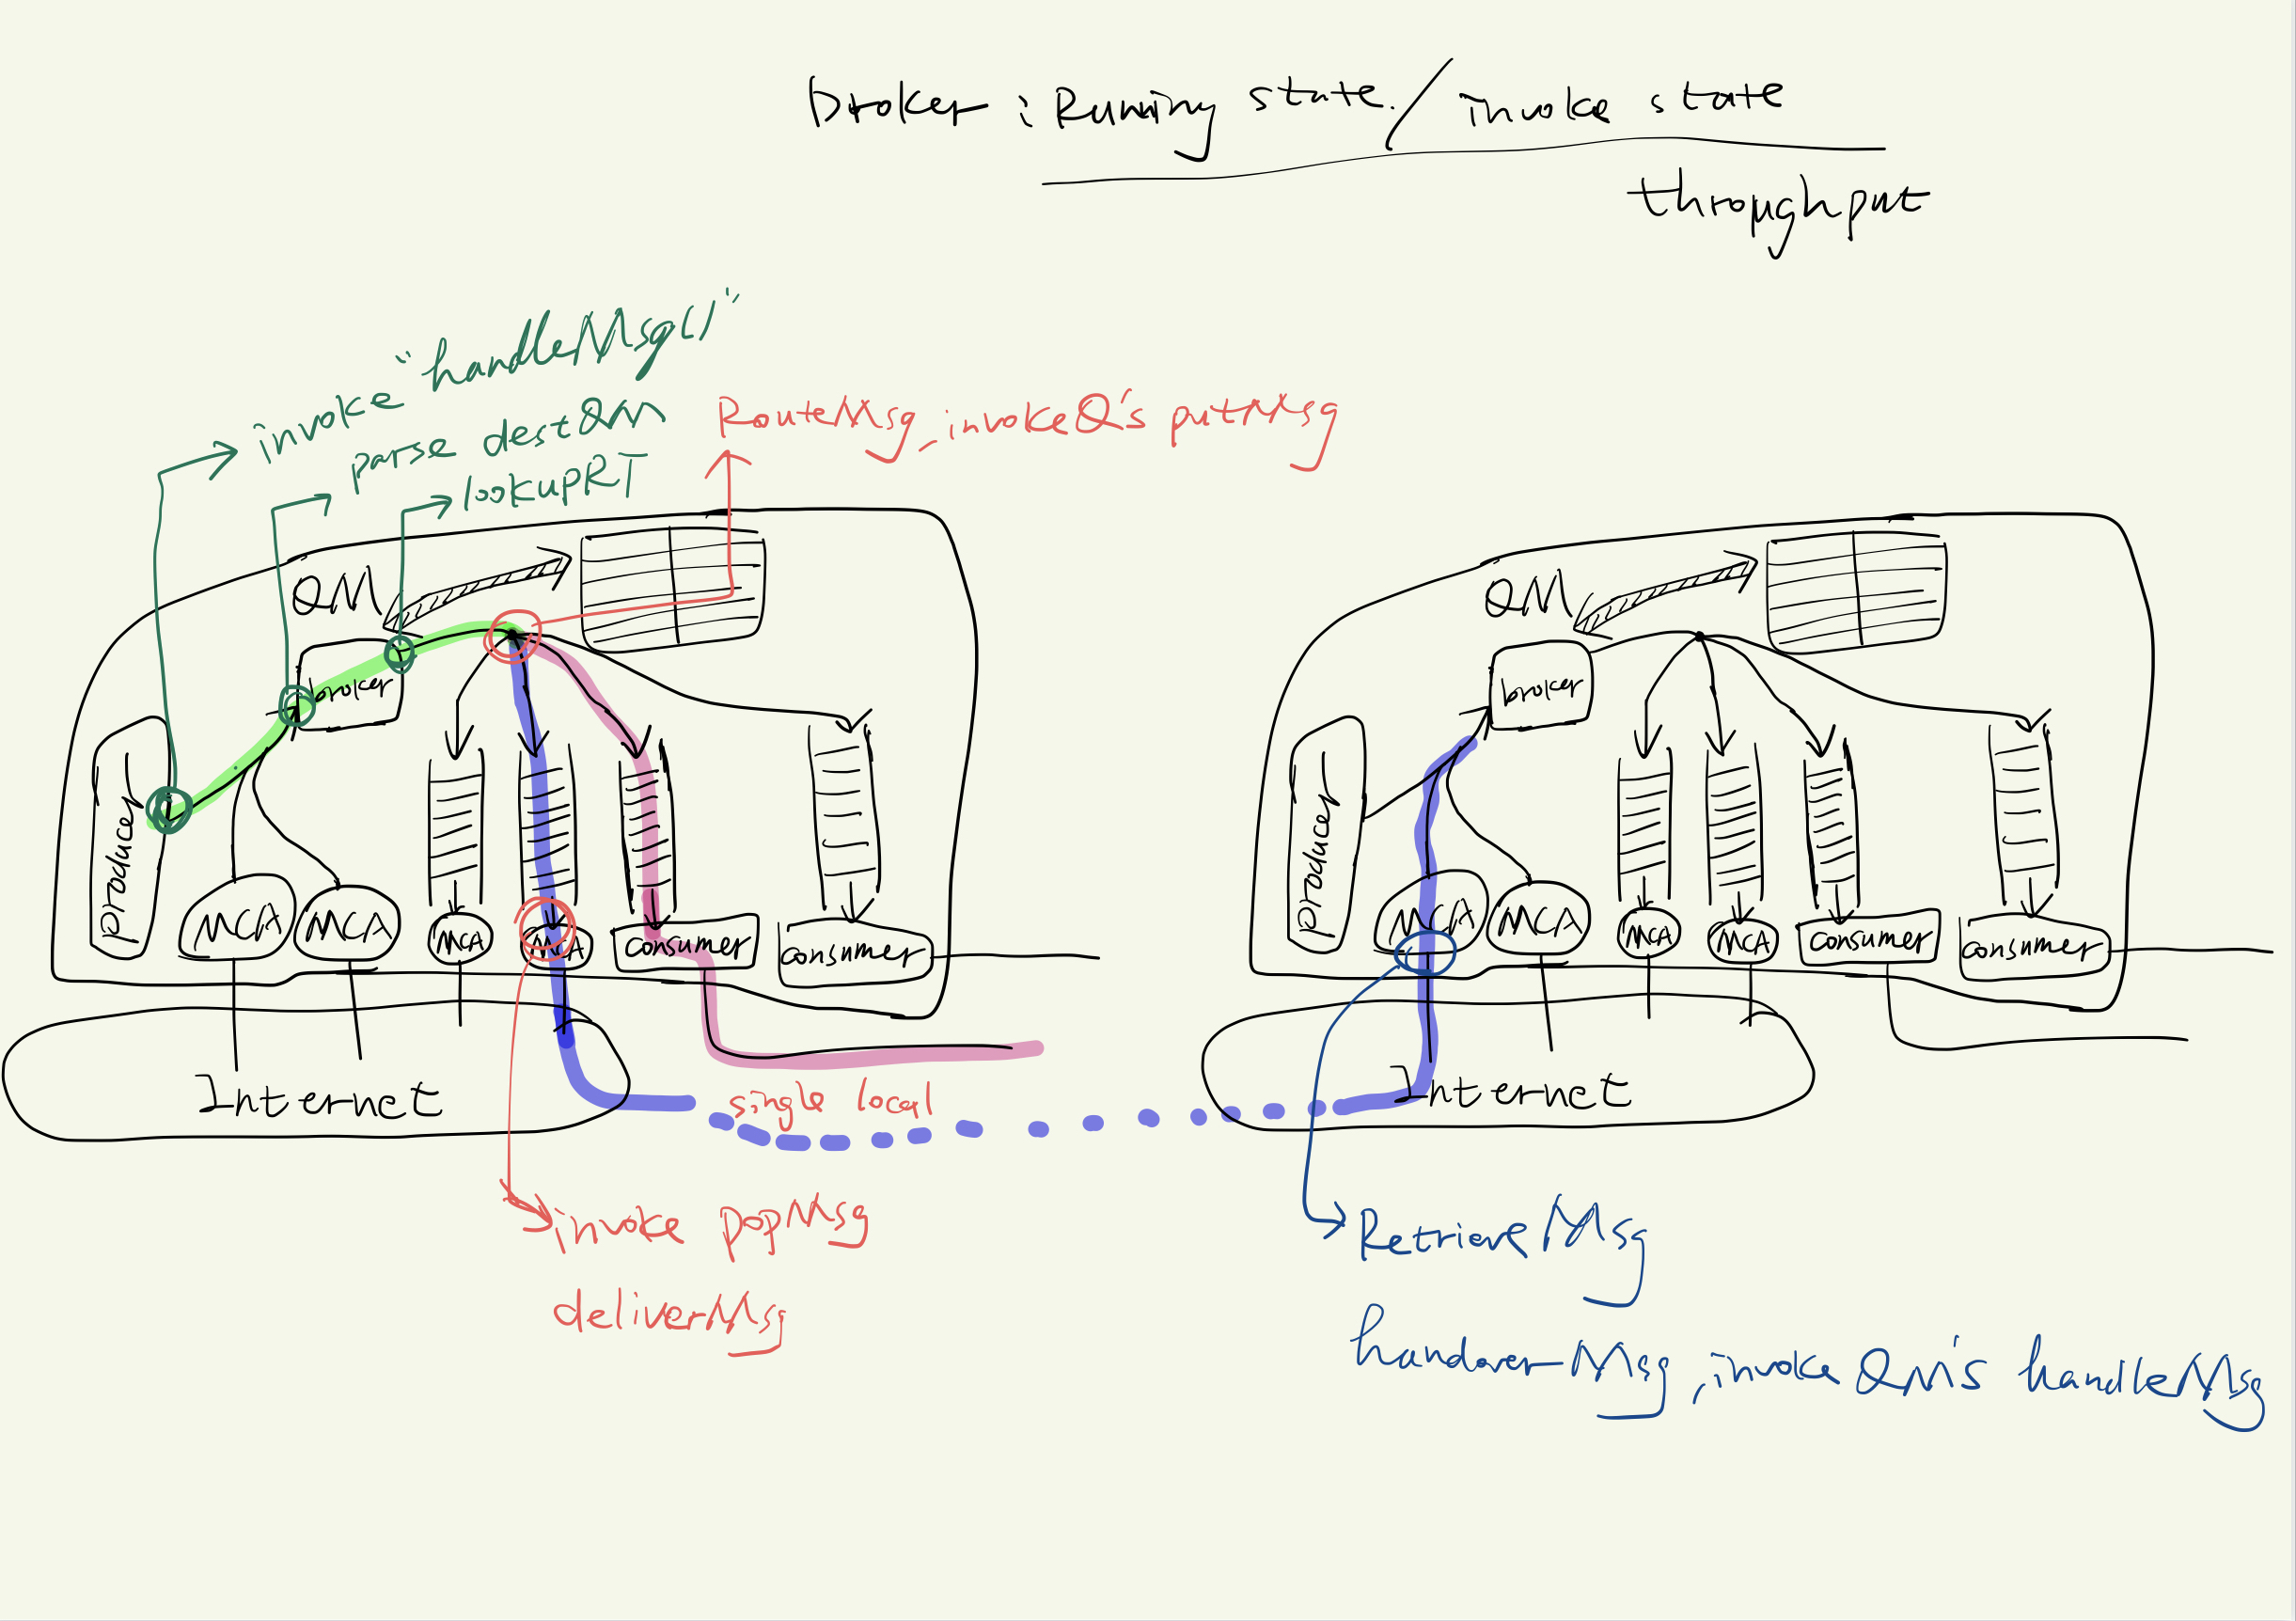 broker : Running state. / invoke state
throughput
invoke "handleMsg()"
parse destQM
lookupRT
RouteMsg, invokeQ's putMsg
QM
broker
producer
MCA
MCA
MCA
MCA
consumer
consumer
Internet
single local
invoke popMsg
deliverMsg
QM
broker
producer
MCA
MCA
MCA
MCA
consumer
consumer
Internet
RetrieveMsg
handoverMsg, invoke QM's handleMsg